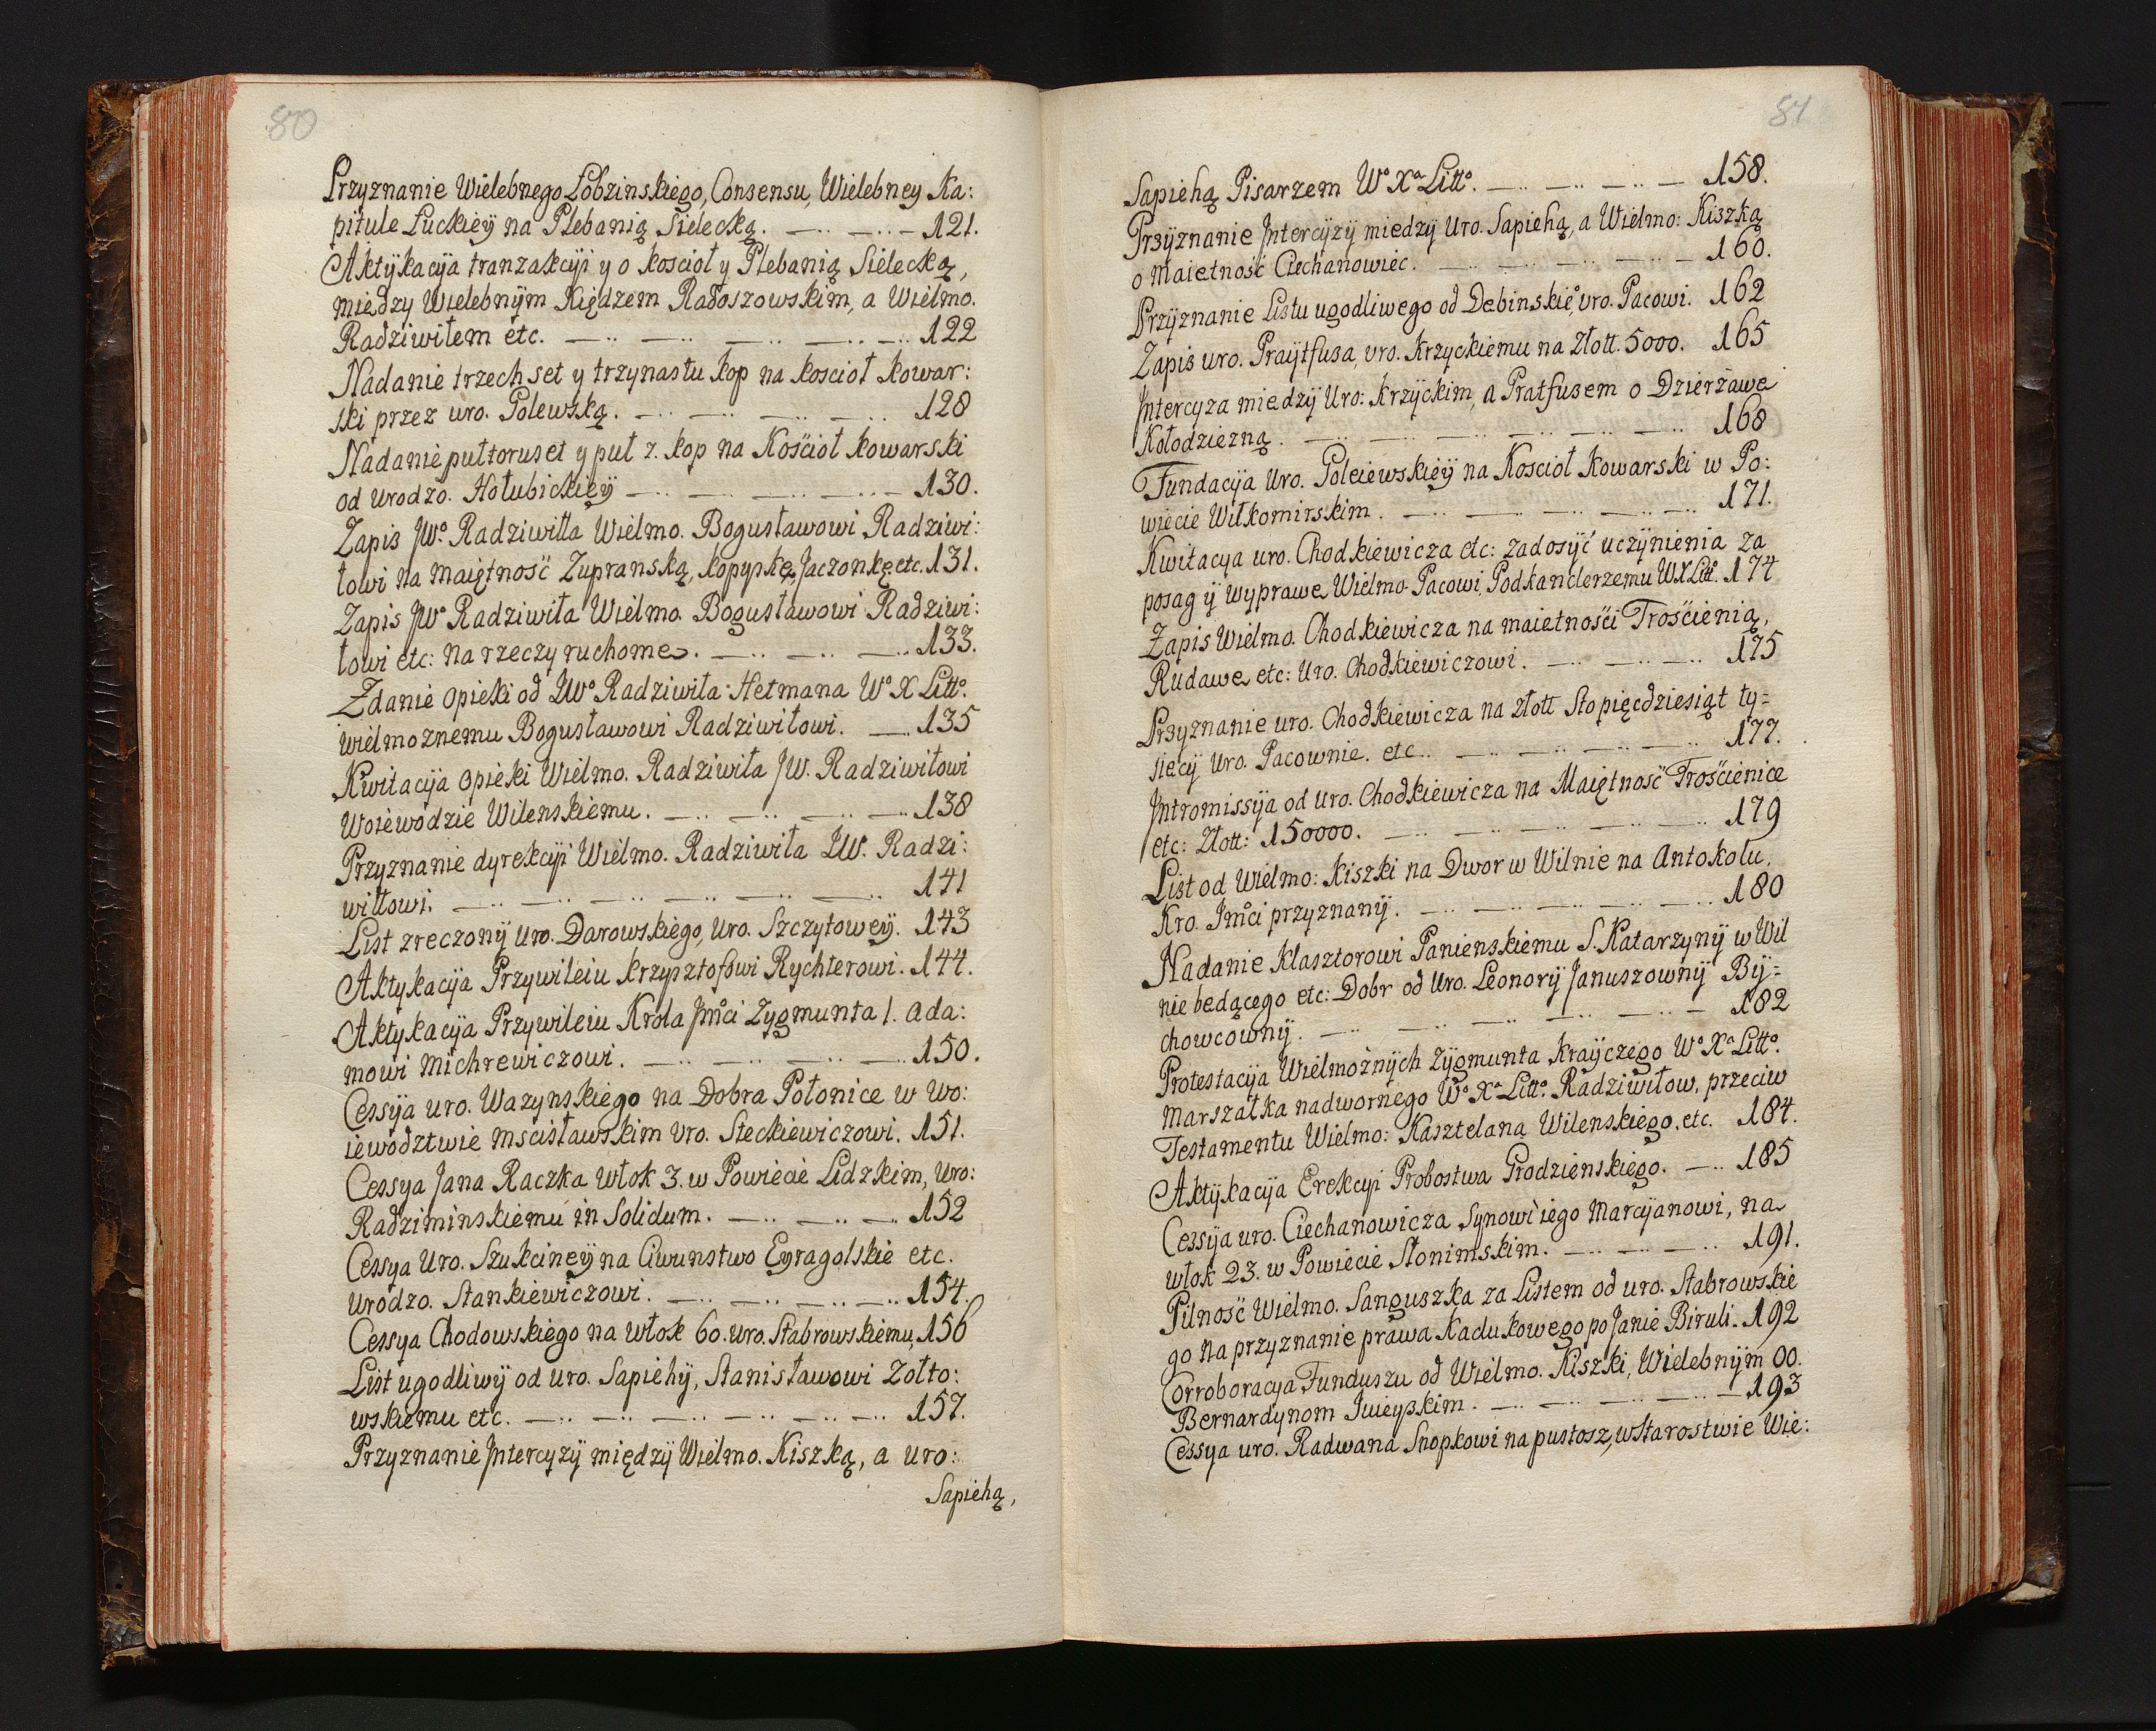 80
Przyznanie Wielebnego Łobzinskiego, Consensu, Wielebney Ka:
pitule Łuckiey na Plebanią Sielecką. 121.
Aktykacya tranzakcyi y o koscioł y Plebanią Sielecką,
między Wielebnym Xiędzem Radoszowskim, a Wielmo.
Radziwiłem etc. 122
Nadanie trzech set y trzynastu kop na koscioł kowar:
ski przez uro. Polewską. 128
Nadanie pułtoruset y puł 7. kop na Kościoł kowarski
od Urodzo. Hołubickiey 130.
Zapis JWo. Radziwiłła Wielmo. Bogusławowi Radziwi:
łowi na maiętność Zupranską, kopyskę, Jaczonkę etc. 131.
Zapis JWo Radziwiła Wielmo. Bogusławowi Radziwi:
łowi etc: na rzeczy ruchome. 133.
Zdanie opieki od JWo Radziwiła: Hetmana Wo X Litto.
Wielmoznemu Bogusławowi Radziwiłowi. 135
Kwitacya opieki Wielmo. Radziwiła JW. Radziwiłowi
Woiewodzie Wilenskiemu. 138
Przyznanie dyrekcyi Wielmo. Radziwiła JW. Radzi:
wiłłowi. 141
List zreczony uro. Darowskiego, uro. Szczytowey. 143
Aktykacya Przywileiu krzysztofowi Rychterowi. 144.
Aktykacya Przywileiu Krola Jmci Zygmunta I. Ada:
mowi Michrewiczowi. 150.
Cessya uro. Wazynskiego na Dobra Połonice w Wo:
iewodztwie mscisławskim uro. Steckiewiczowi. 151.
Cessya Jana Raczka włok 3. w Powiecie Lidzkim, Uro:
Radziminskiemu in Solidum. 152
Cessya Uro. Szukciney na Ciwunstwo Eyragolskie etc.
Urodzo. Stankiewiczowi. 154.
Cessya Chodowskiego na włok 60. uro. Stabrowskiemu, 156
List ugodliwy od uro. Sapiehy, Stanisławowi Zołto:
wskiemu etc. 157.
Przyznanie Intercyzy między Wielmo. Kiszką, a uro:
Sapiehą,
81
Sapiehą Pisarzem Wo Xa Litto. 158.
Przyznanie Intercyzy miedzy Uro. Sapiehą, a Wielmo: Kiszką
o Maietność Ciechanowiec. 160.
Przyznanie Listu ugodliwego od Debinskieo, uro. Pacowi. 162
Zapis uro. Praytfusa, uro. Krzyckiemu na Złott. 5000. 165
Intercyza miedzy Uro: Krzyckim, a Pratfusem o Dzierżawe
Kołodziezną. 168
Fundacya Uro. Poleiewskiey na Kosciół kowarski w Po:
wiecie Wiłkomirskim. 171.
Kwitacya uro. Chodkiewicza etc: zadosyć uczynienia za
posag y wyprawe Wielmo. Pacowi, Podkanclerzemu WX Litto. 174
Zapis Wielmo. Chodkiewicza na maietności Trościenią,
Rudawe etc: Uro. Chodkiewiczowi. 175
Przyznanie uro. Chodkiewicza na złott Stopięcdziesiąt ty=
siecy Uro. Pacownie. etc.. 177.
Intromissya od uro. Chodkiewicza na Maiętność Trościenice
etc: Złott: 150000. 179
List od Wielmo: Kiszki na Dwor w Wilnie na Antokołu.
Kro. Jmci przyznany. 180
Nadanie klasztorowi Panienskiemu S. Katarzyny w Wil
nie bedącego etc: Dobr od Uro. Leonory Januszowny By=
chowcowny. 182
Protestacya Wielmożnych Zygmunta kraÿczego Wo Xa Litto.
Marszałka nadwornego Wo Xa Litto. Radziwiłow, przeciw
Testamentu Wielmo: Kasztelana Wilenskiego. etc. 184.
Aktykacya Erekcyi Probostwa Grodzienskiego. 185
Cessya uro. Ciechanowicza Synowi iego Marcyanowi, na
włok 23. w Powiecie Słonimskim. 191.
Pilność Wielmo. Sanguszka za Listem od uro. Stabrowskie
go na przyznanie prawa Kadukowego po Janie Biruli. 192
Corroboracya Funduszu od Wielmo. Kiszki, Wielebnym OO.
Bernardynom Jweyskim. 193
Cessya uro. Radwana Snopkowi na pustosz, w Starostwie Wie: